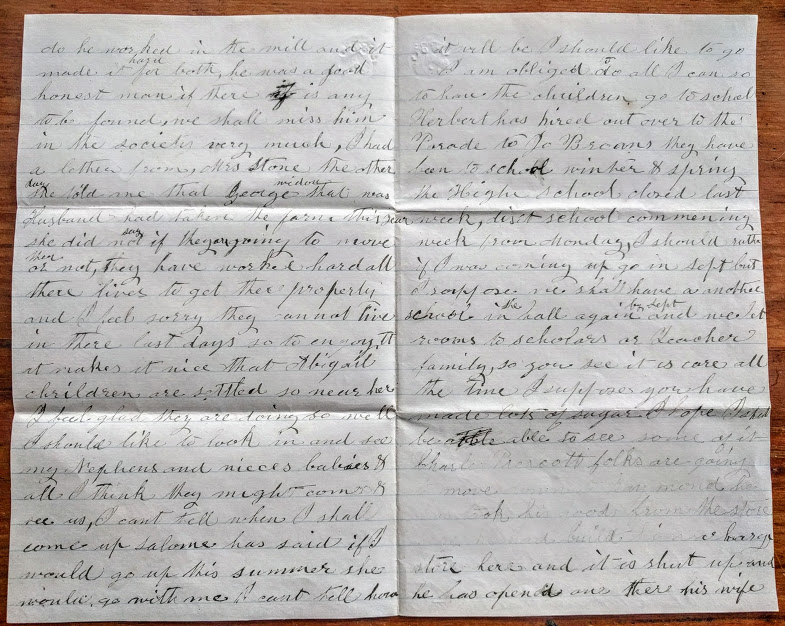 do he worked in the mill and it
made it hard for both, he was a good
honest man if there is any
to be found, we shall miss him
in the society very much, I had
a lether from, Mrs Stone the other
day she told me that George that was
Husband had taken the farm this year
she did not say if they going to move
or not, they have worked hard all
there lives to get there property
and I feel sorry they cannot live
in there last days so to enjoy it
it makes it nice that Abigail
children are settled so near her
I feel glad they are doing so well
I should like to look in and see
my Nephews and nieces babies &
all I think they might come &
see us, I cant tell when I shall
come up salome has said if I
would go up this summer she
would go with me I cant tell how
it will be I should like to go
I am obliged to do all I can so
to have the children go to school
Herbert has hired out over to the
Parade to Jo Browns they have
been to school winter & spring
the High school closed last
week, dist school commening
week from Monday, I should rathe
if I was coming up go in sept but
I suppose we shall have a another
school in the hall again by sept and we let
rooms to scholars or teacher
family, so you see it is care all
the time I suppose you have
made lots of sugar I hope I shal
be able to see some of it
Charle Prescott folks are going
move
his goods from the store
build
store here and it is shut up and
he has opened one ther his wife